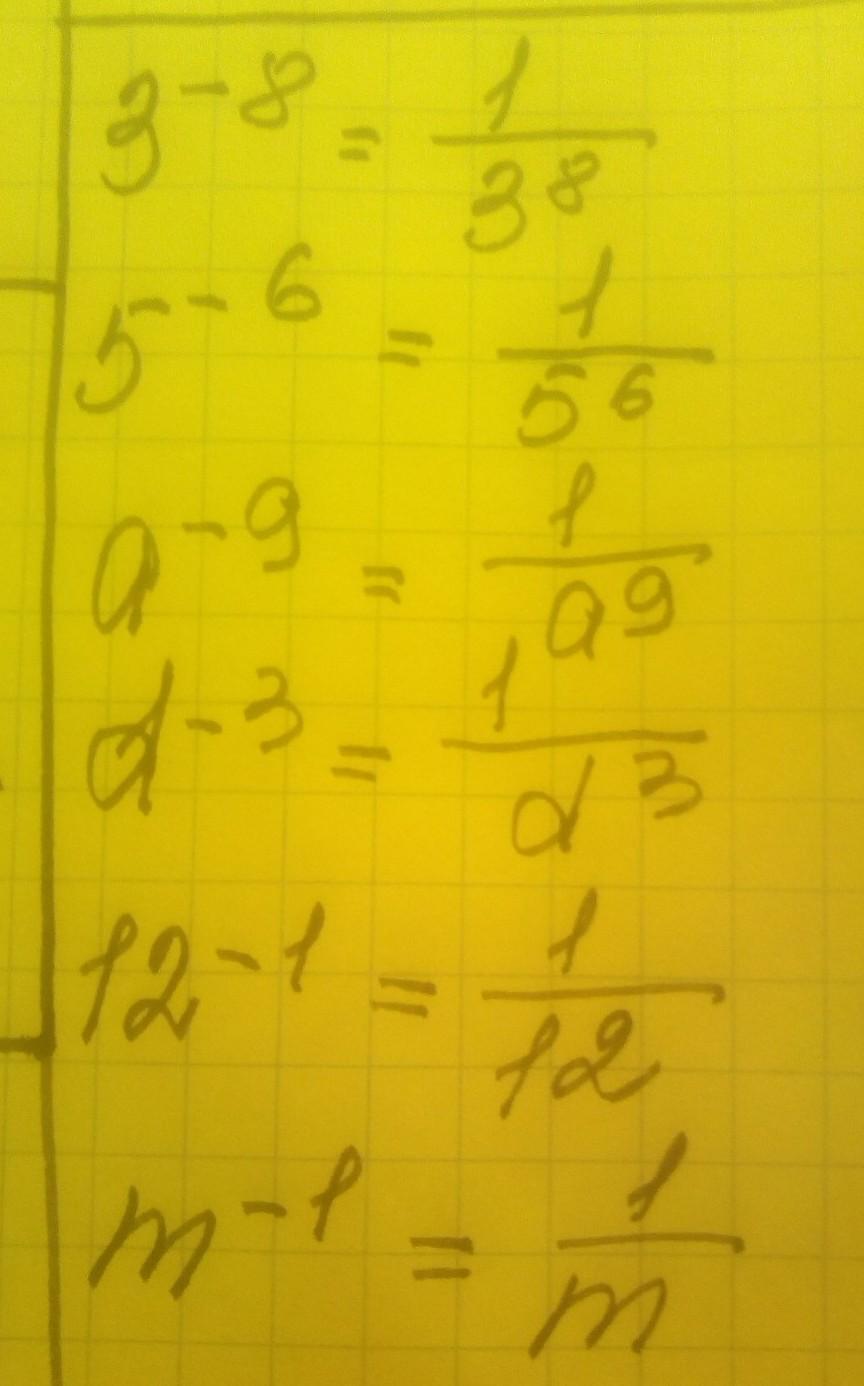 3^{-8} = \frac{1}{3^8}
5^{-6} = \frac{1}{5^6}
a^{-9} = \frac{1}{a^9}
d^{-3} = \frac{1}{d^3}
12^{-1} = \frac{1}{12}
m^{-1} = \frac{1}{m}